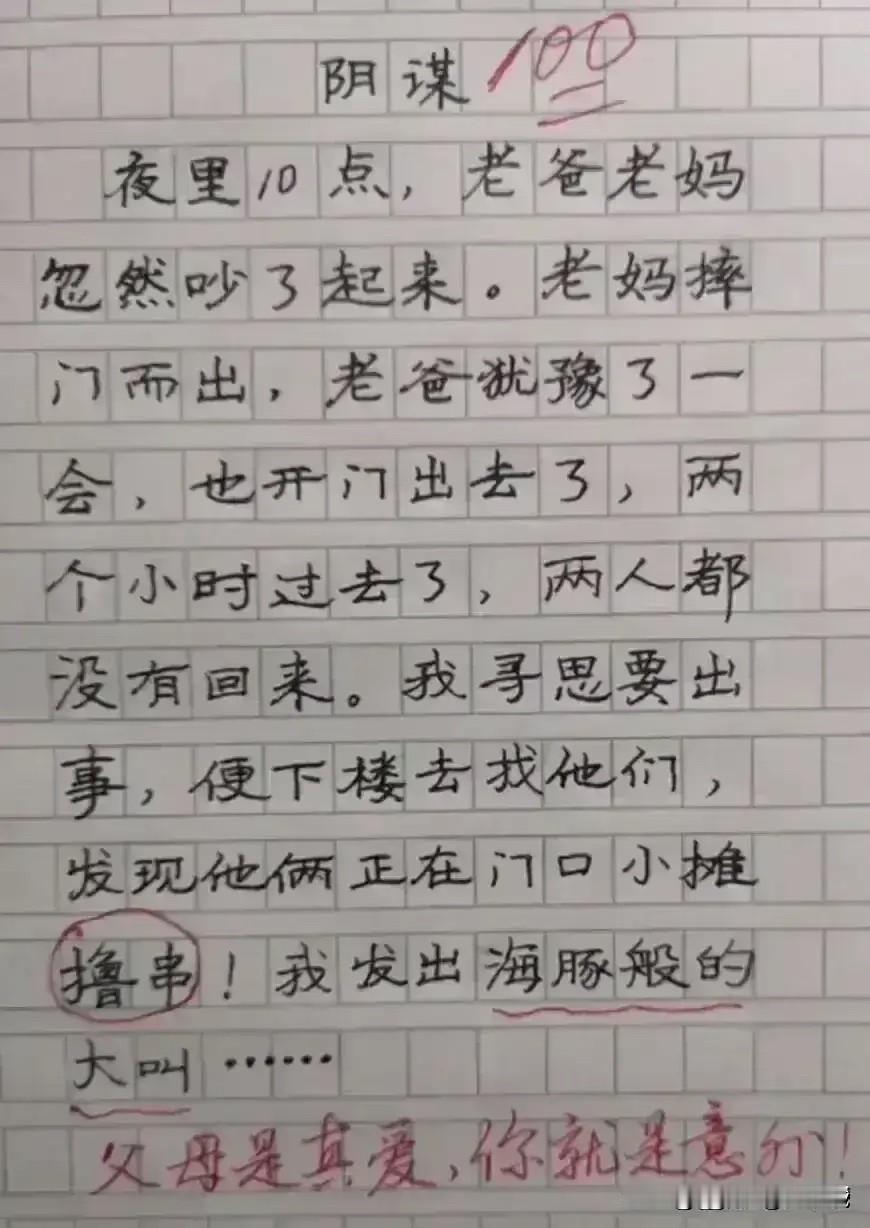 阴谋 100
夜里10点，老爸老妈
忽然吵了起来。老妈摔
门而出，老爸犹豫了一
会，也开门出去了，两
个小时过去了，两人都
没有回来。我寻思要出
事，便下楼去找他们，
发现他俩正在门口小摊
撸串！我发出海豚般的
大叫……
父母是真爱，你就是意外！